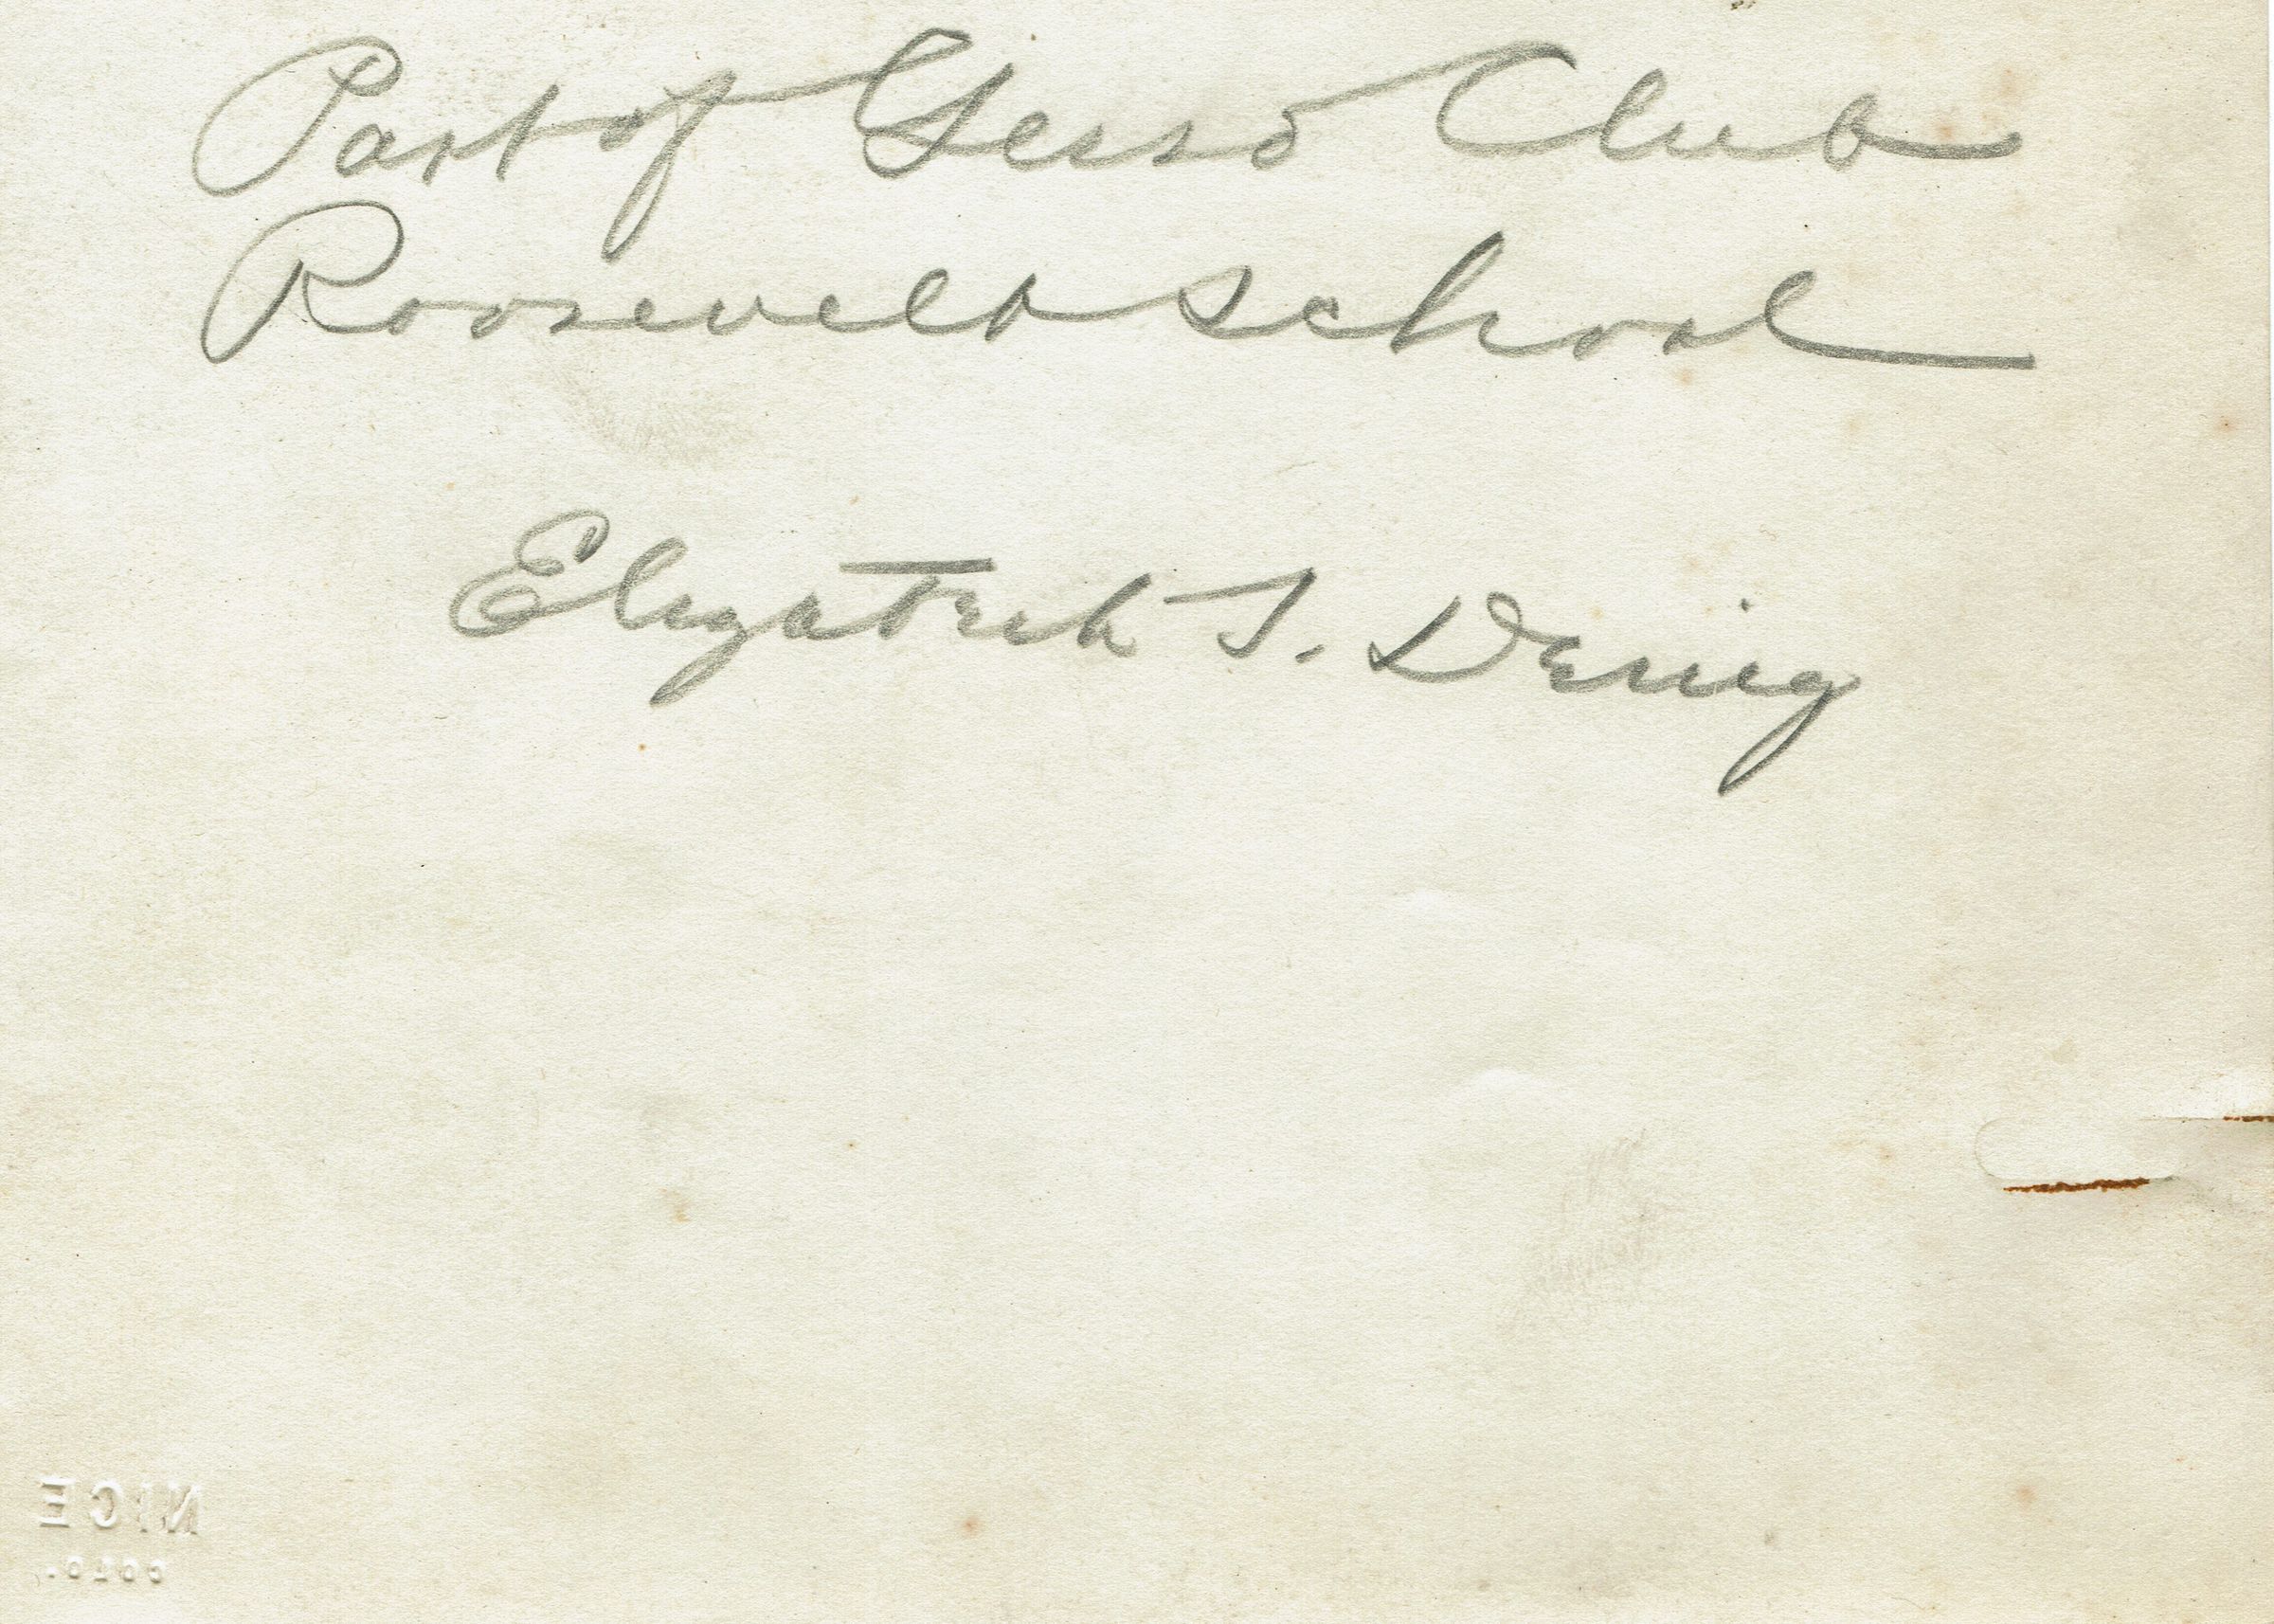 Part of Gesso Club
Roosevelt School
Elizabeth S. Denig
NICE
COLO.